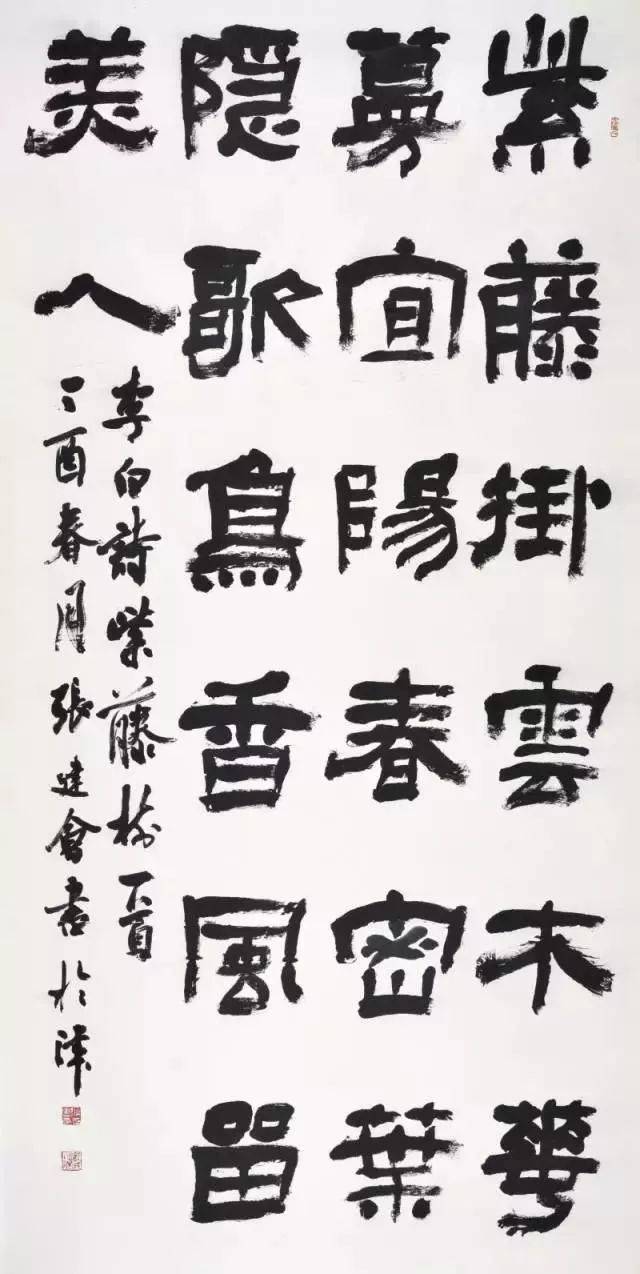 紫藤掛雲木花
蔓宜陽春密葉
隱歌鳥香風留
美人
李白詩紫藤樹一首
丁酉春月張建會書於津